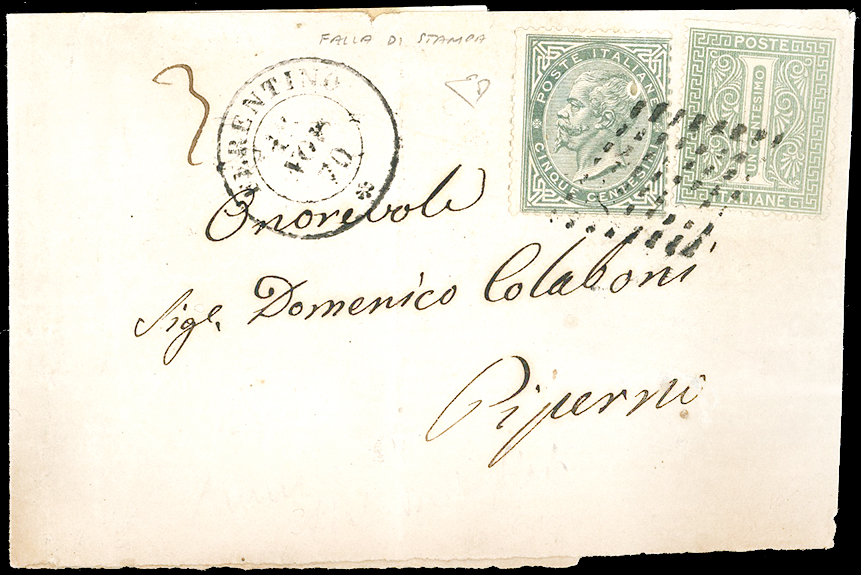 FALLA DI STAMPA
3
FERENTINO
NOV
70
POSTE ITALIANE
CINQUE CENTESIMI
POSTE
1
UN CENTESIMO
ITALIANE
Onorevole
Sigr. Domenico Colaboni
Piperni